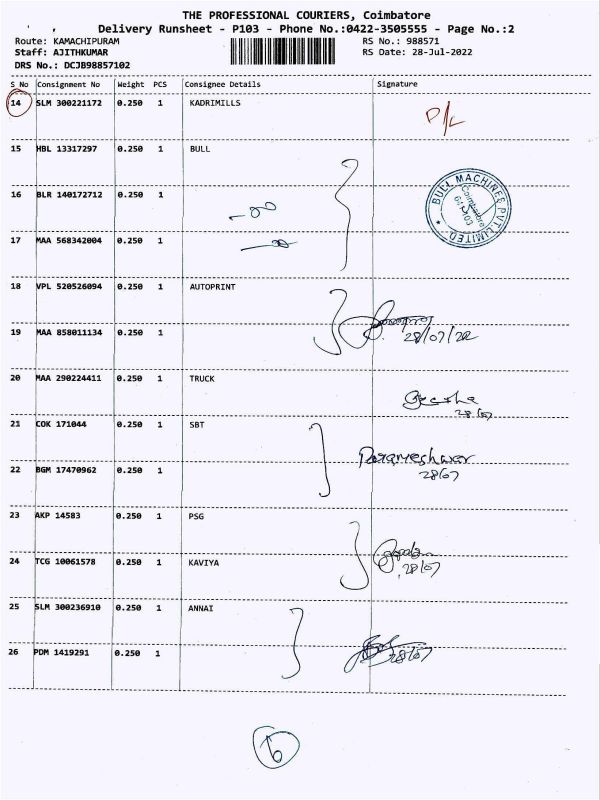 THE PROFESSIONAL COURIERS, Coimbatore
Delivery Runsheet - P103 - Phone No.:0422-3505555 - Page No.:2
Route: KAMACHIPURAM RS No.: 988571
Staff: AJITHKUMAR RS Date: 28-Jul-2022
DRS No.: DCJB98857102
S No Consignment No Weight PCS Consignee Details Signature
14 SLM 300221172 0.250 1 KADRIMILLS D/L
15 HBL 13317297 0.250 1 BULL
BULL MACHINES PVT. LIMITED
Coimbatore
16 BLR 140172712 0.250 1
17 MAA 568342004 0.250 1
18 VPL 520526094 0.250 1 AUTOPRINT
28/07/22
19 MAA 858011134 0.250 1
20 MAA 290224411 0.250 1 TRUCK
28/07
21 COK 171044 0.250 1 SBT
Parameshwar
28/07
22 BGM 17470962 0.250 1
23 AKP 14583 0.250 1 PSG
28/07
24 TCG 10061578 0.250 1 KAVIYA
25 SLM 300236910 0.250 1 ANNAI
26 PDM 1419291 0.250 1
28/07
6